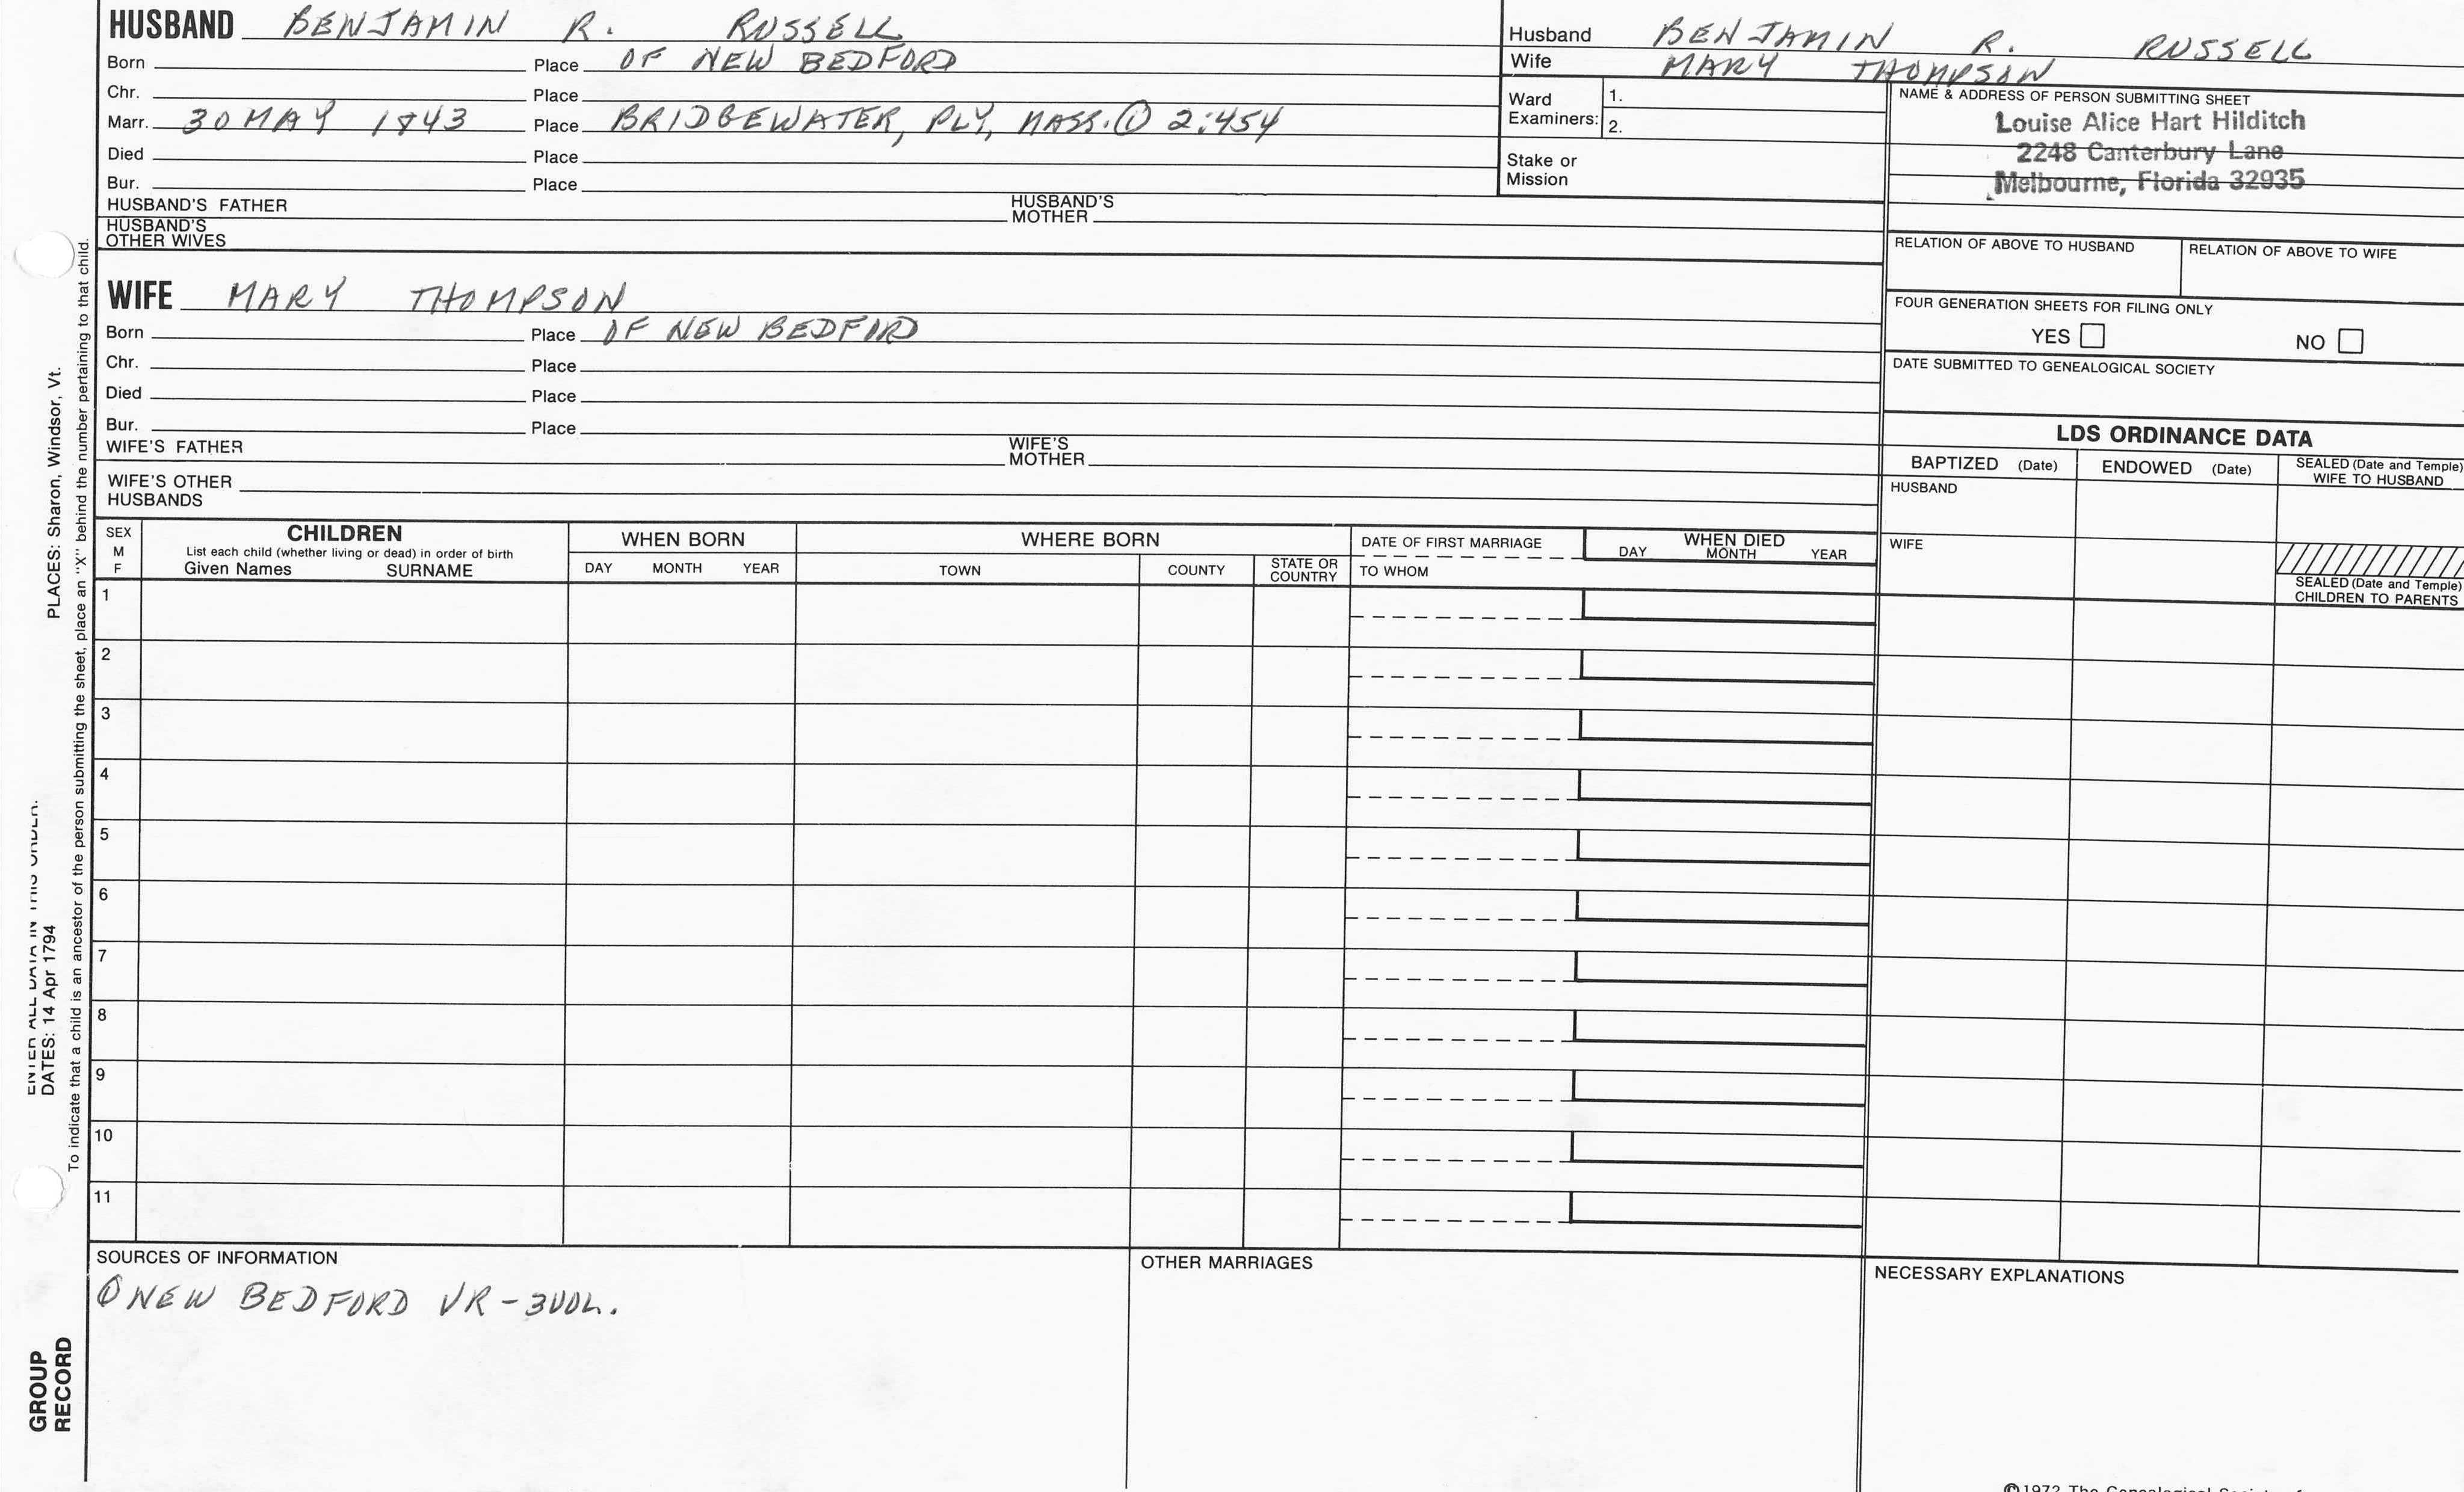 HUSBAND BENJAMIN R. RUSSELL
Born Place OF NEW BEDFORD
Chr. Place
Marr. 30 MAY 1843 Place BRIDGEWATER, PLY, MASS. ① 2:454
Died Place
Bur. Place
HUSBAND'S FATHER HUSBAND'S MOTHER
HUSBAND'S OTHER WIVES
Husband BENJAMIN R. RUSSELL
Wife MARY THOMPSON
Ward Examiners: 1.
2.
Stake or Mission
NAME & ADDRESS OF PERSON SUBMITTING SHEET
Louise Alice Hart Hilditch
2248 Canterbury Lane
Melbourne, Florida 32935
RELATION OF ABOVE TO HUSBAND RELATION OF ABOVE TO WIFE
FOUR GENERATION SHEETS FOR FILING ONLY
YES NO
DATE SUBMITTED TO GENEALOGICAL SOCIETY
WIFE MARY THOMPSON
Born Place OF NEW BEDFORD
Chr. Place
Died Place
Bur. Place
WIFE'S FATHER WIFE'S MOTHER
WIFE'S OTHER HUSBANDS
LDS ORDINANCE DATA
BAPTIZED (Date) ENDOWED (Date) SEALED (Date and Temple) WIFE TO HUSBAND
HUSBAND
WIFE
SEALED (Date and Temple) CHILDREN TO PARENTS
SEX M F
CHILDREN
List each child (whether living or dead) in order of birth
Given Names SURNAME
WHEN BORN
DAY MONTH YEAR
WHERE BORN
TOWN COUNTY STATE OR COUNTRY
DATE OF FIRST MARRIAGE
TO WHOM
WHEN DIED
DAY MONTH YEAR
1
2
3
4
5
6
7
8
9
10
11
SOURCES OF INFORMATION
① NEW BEDFORD VR - 3 VOL.
OTHER MARRIAGES
NECESSARY EXPLANATIONS
ENTER ALL DATA IN THIS ORDER:
DATES: 14 Apr 1794
PLACES: Sharon, Windsor, Vt.
To indicate that a child is an ancestor of the person submitting the sheet, place an "X" behind the number pertaining to that child.
GROUP
RECORD
©1972 The Genealogical Society of